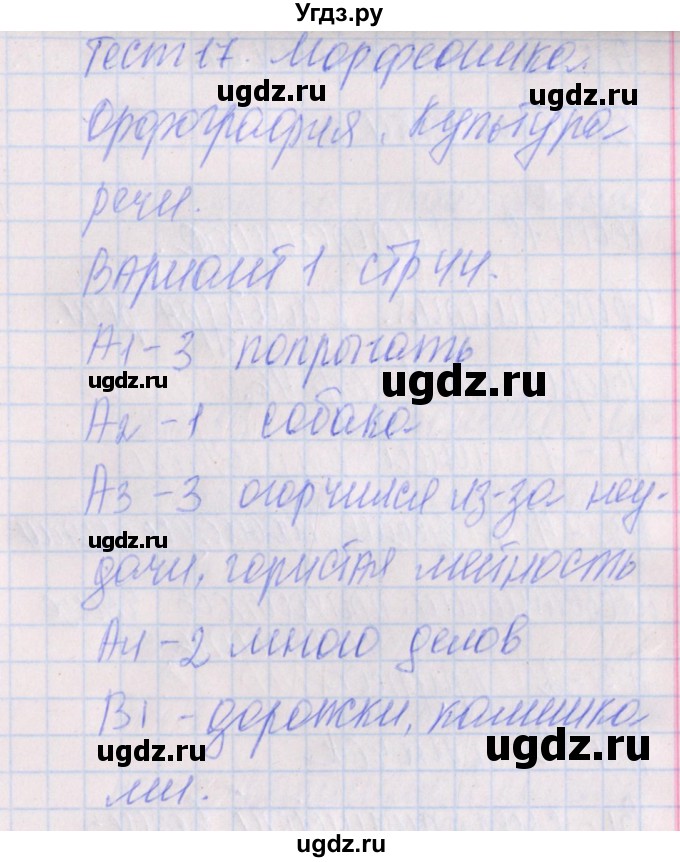 Угдз.ру
Тест 17. Морфемика.
ugdz.ru ugdz.ru
Орфография. Культура
речи.
Вариант 1 стр 44.
А1 – 3 попрыгать
ugdz.ru ugdz.ru
А2 – 1 собака
А3 – 3 огорчился из-за неу-
ugdz.ru
дачи, гористая местность
А4 – 2 много делов
В1 – дорожки, камешка
ugdz.ru ugdz.ru
ми.
ugdz.ru